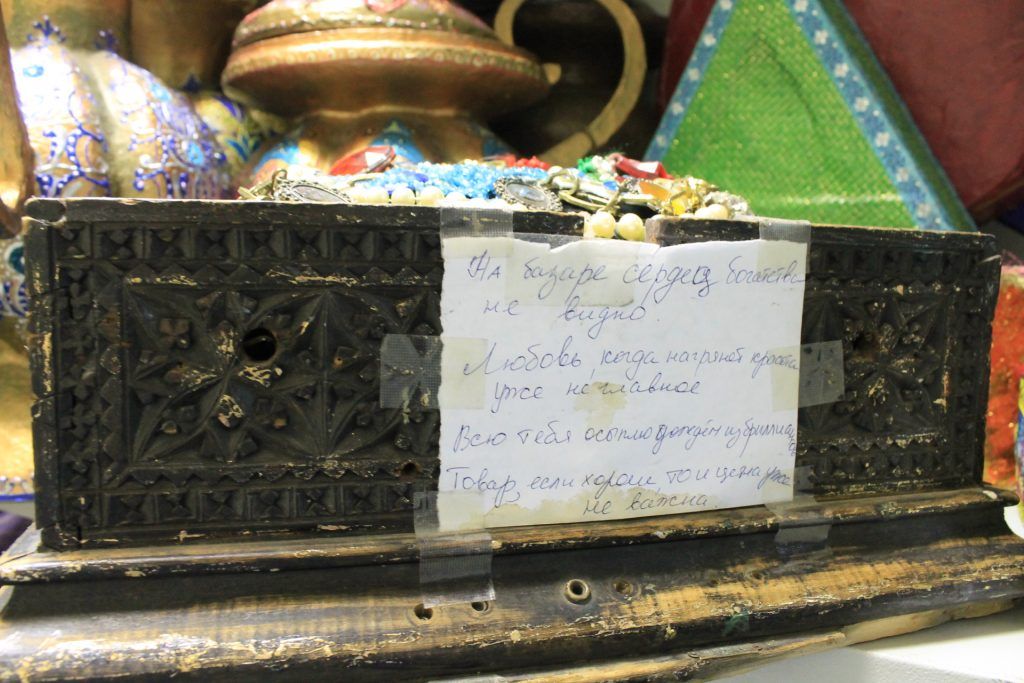 На базаре сердец богатства
не видно.
Любовь, когда нагрянет красота
уже не главное
Всю тебя осыплю дождём из бриллиантов
Товар, если хорош то и цена уже
не важна.